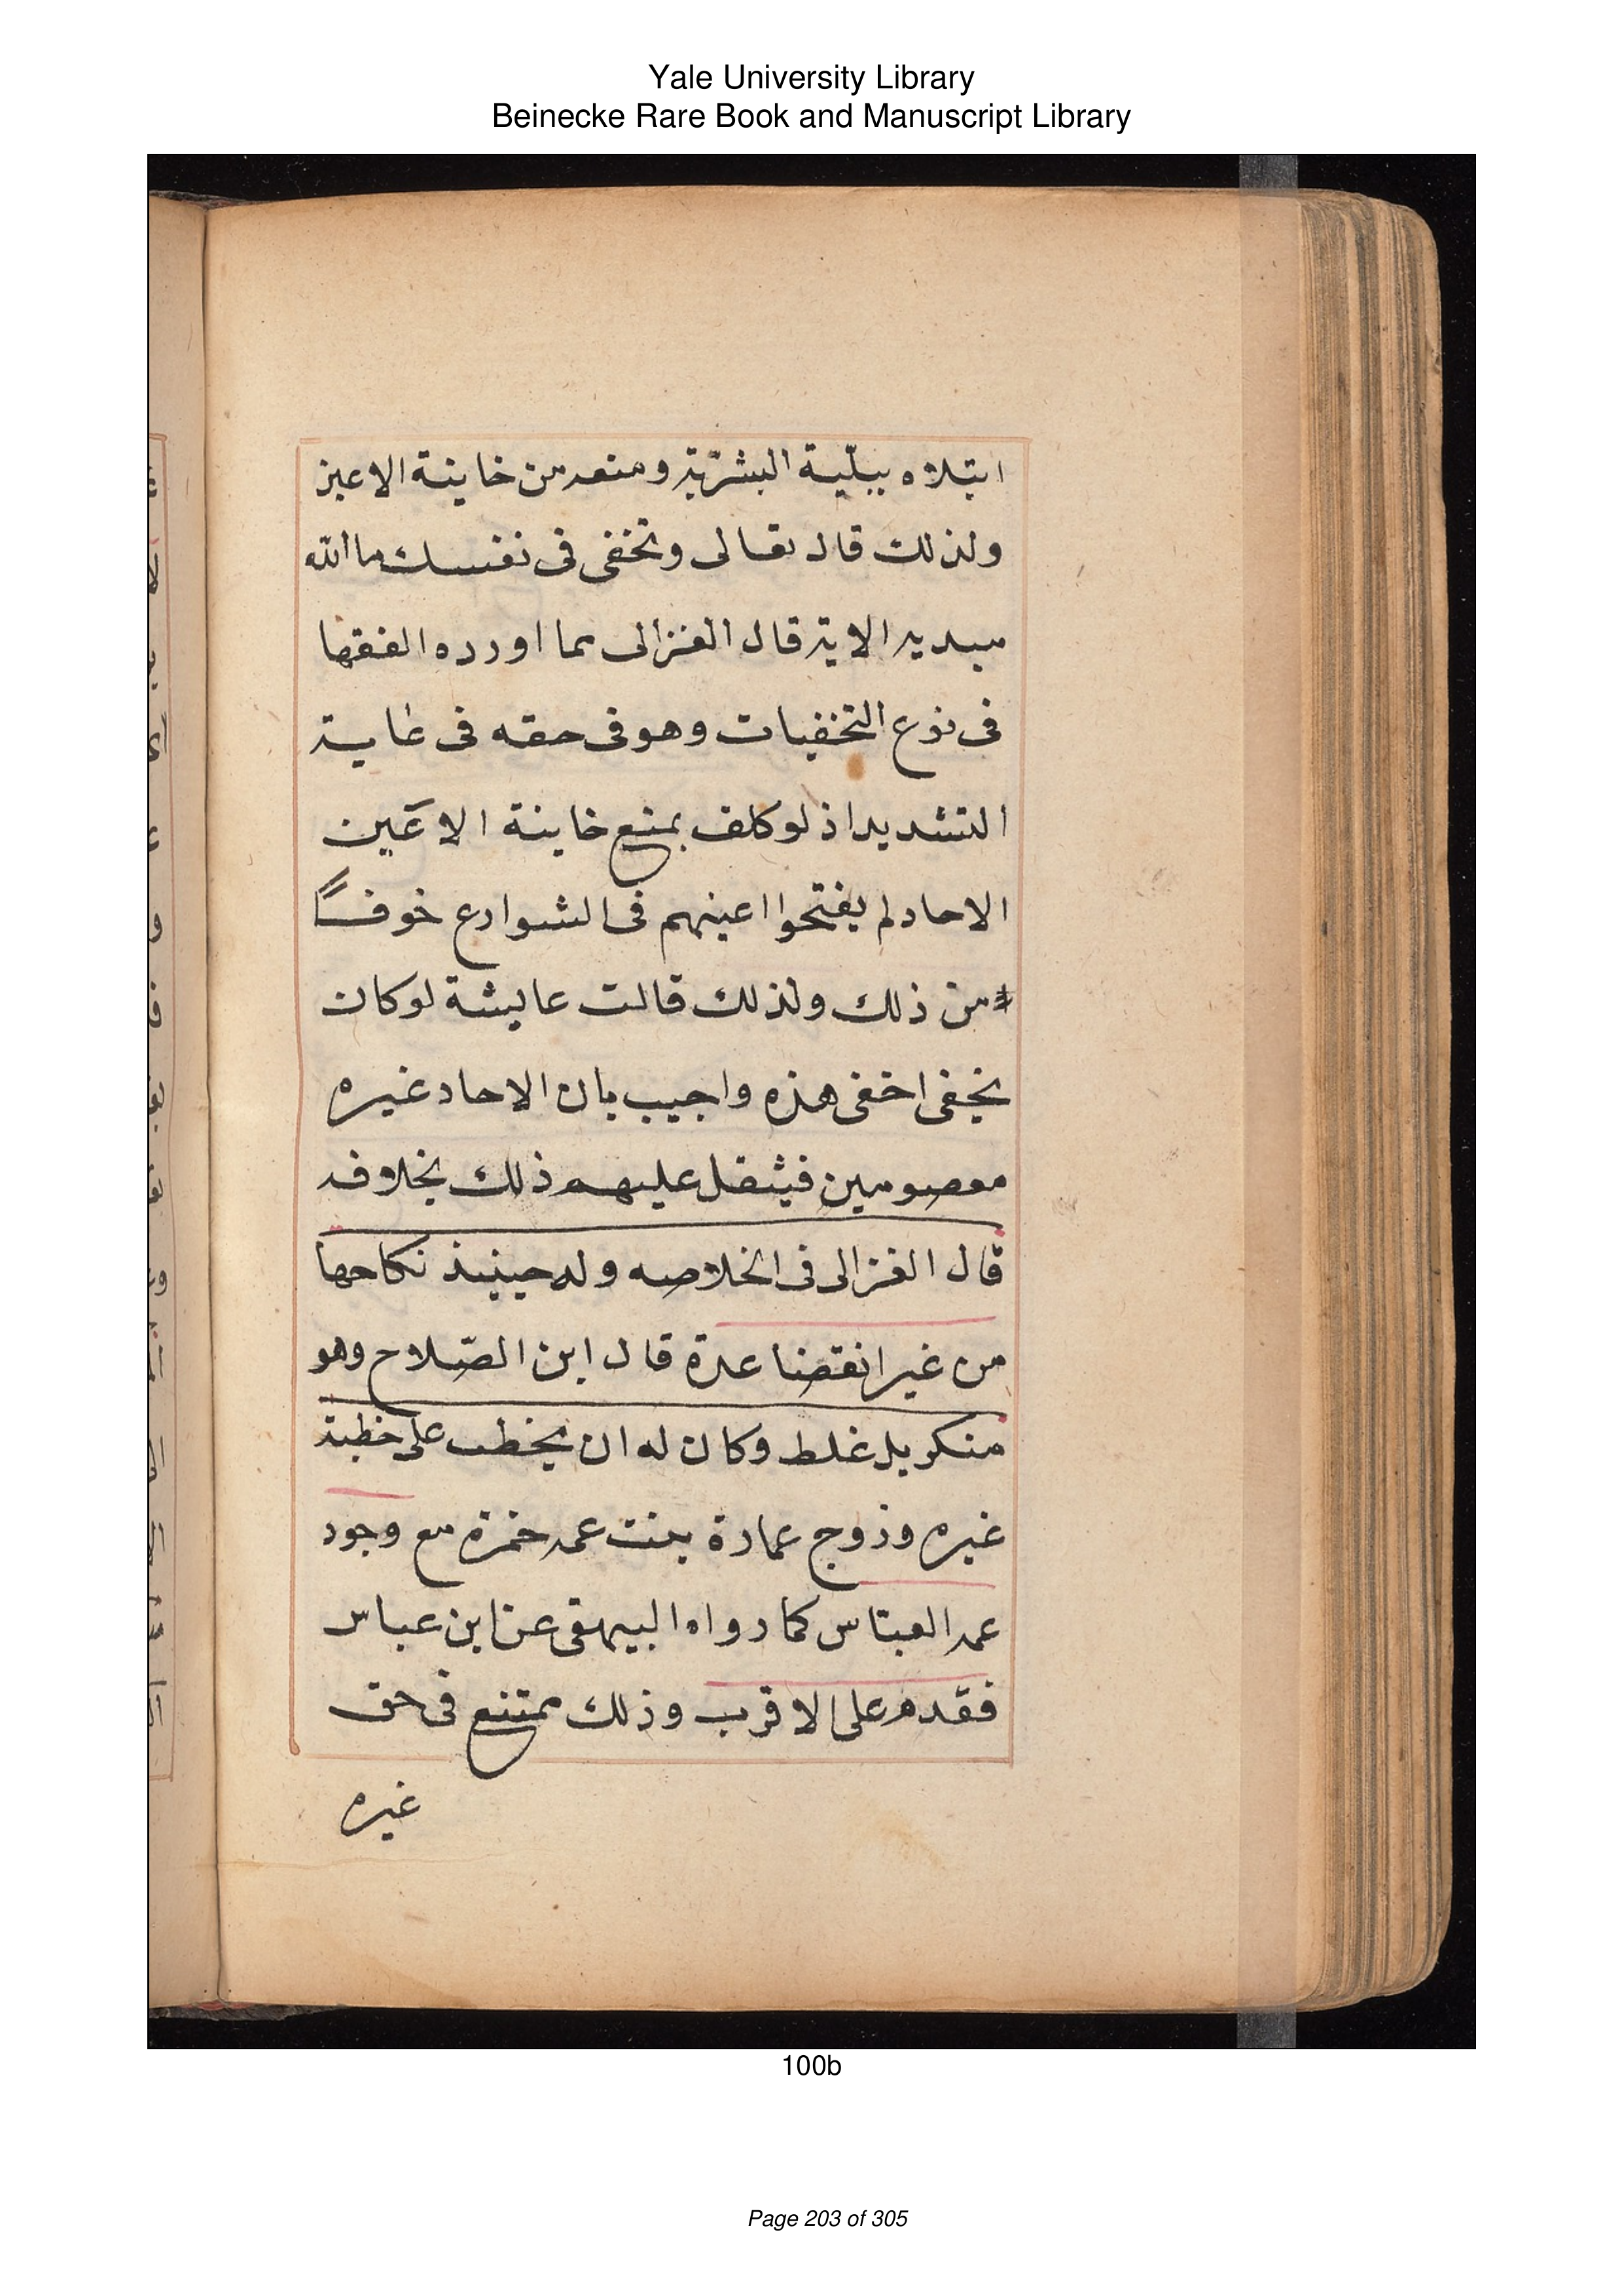 Yale University Library
Beinecke Rare Book and Manuscript Library
ابتلاه ببليّة البشريّة ومنعه من خاينة الاعين
ولذلك قال تعالى وتخفى فى نفسك ما الله
مبديه الاية قال الغزالى مما اورده الفقها
فى نوع التخفيات وهو فى حقه فى غاية
التشديد اذ لو كلف بمنع خاينة الاعين
الاحاد لم يفتحوا اعينهم فى الشوارع خوفاً
من ذلك ولذلك قالت عايشة لو كان
يخفى اخفى هذه واجيب بان الاحاد غيره
معصومين فيثقل عليهم ذلك بخلافه
قال الغزالى فى الخلاصه وله حينيذ نكاحها
من غير انقضا عدة قال ابن الصّلاح وهو
منكر بل غلط وكان له ان يخطب على خطبة
غيره وزوج عمارة بنت عمه حمزة مع وجود
عمه العبّاس كما رواه البيهقى عن ابن عباس
فقدم على الاقرب وذلك ممتنع فى حق
غيره
100b
Page 203 of 305